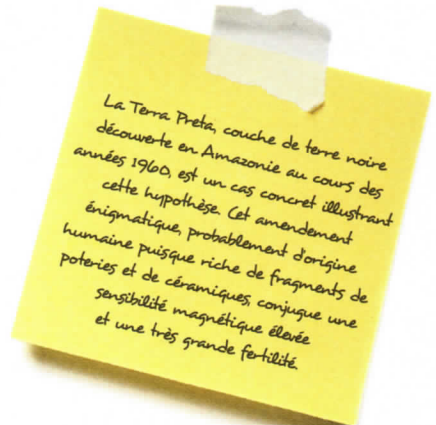 La Terra Preta, couche de terre noire
découverte en Amazonie au cours des
années 1960, est un cas concret illustrant
cette hypothèse. Cet amendement
énigmatique, probablement d'origine
humaine puisque riche de fragments de
poteries et de céramiques, conjugue une
sensibilité magnétique élevée
et une très grande fertilité.